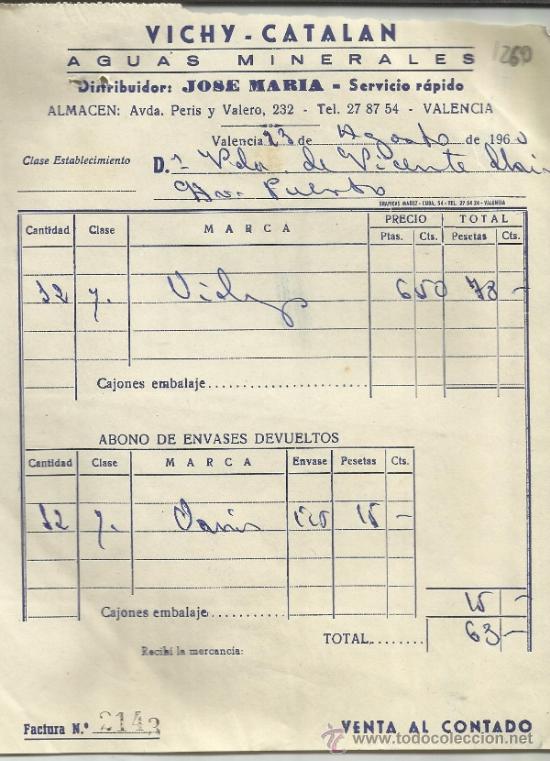 VICHY-CATALAN
1260
AGUAS MINERALES
Distribuidor: JOSE MARIA - Servicio rápido
ALMACEN: Avda. Peris y Valero, 232 - Tel. 27 87 54 - VALENCIA
Valencia 23 de Agosto de 1960
Clase Establecimiento D.ª Vda. de Vicente
Av. Puerto
GRAFICAS MAÑEZ.- CUBA, 54 - TEL. 27 54 24 - VALENCIA
Cantidad Clase MARCA PRECIO TOTAL
Ptas. Cts. Pesetas Cts.
12 Vichy 6 50 78 -
Cajones embalaje
ABONO DE ENVASES DEVUELTOS
Cantidad Clase MARCA Envase Pesetas Cts.
12 Varios 1'25 15 -
Cajones embalaje 15 -
TOTAL 63 -
Recibí la mercancia:
Factura N.º 2143
VENTA AL CONTADO
todocoleccion
www.todocoleccion.net